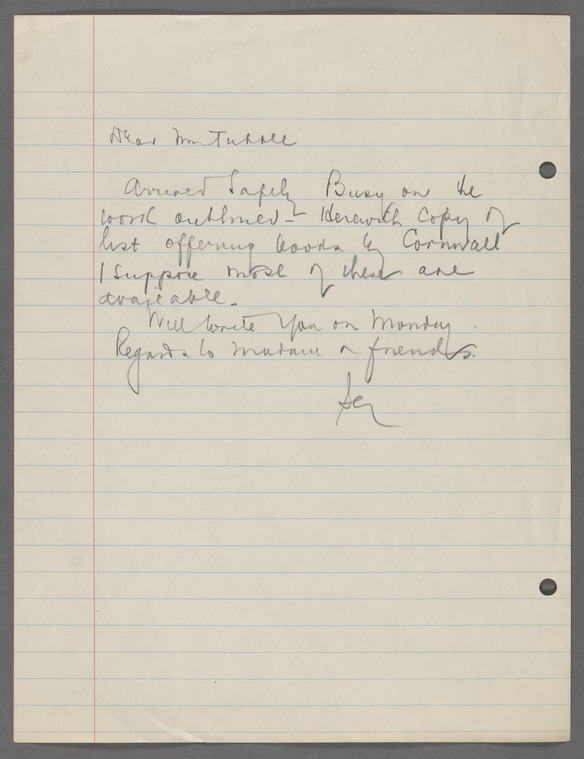 Dear Mr Tuttle
Arrived Safely Busy on the
work outlined - Herewith copy of
list offering books by Cornwall
I suppose most of these are
available.
Will write You on Monday.
Regards to Madam & friends.